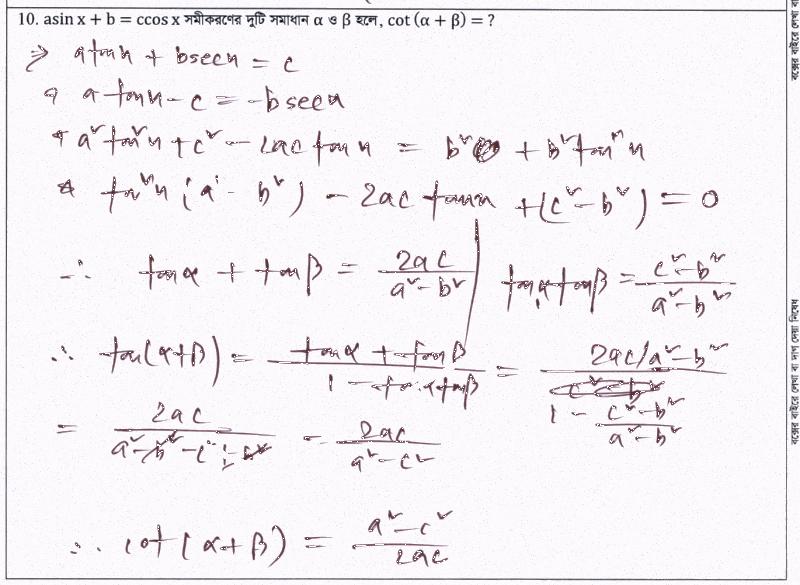 10. asin x + b = ccos x সমীকরণের দুটি সমাধান α ও β হলে, cot (α + β) = ?
⇒ a tan x + b sec x = c
⇒ a tan x - c = -b sec x
⇒ a² tan² x + c² - 2ac tan x = b² + b² tan² x
⇒ tan² x (a² - b²) - 2ac tan x + (c² - b²) = 0
∴ tan α + tan β = 2ac / (a² - b²) | tan α tan β = (c² - b²) / (a² - b²)
∴ tan(α+β) = (tan α + tan β) / (1 - tan α tan β) = (2ac / a² - b²) / (1 - (c² - b²) / (a² - b²))
= 2ac / (a² - b² - c² + b²) = 2ac / (a² - c²)
∴ cot (α + β) = (a² - c²) / 2ac
বক্সের বাইরে লেখা বা দাগ দেয়া নিষেধ